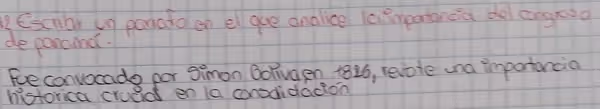 1) Escriba un parrafo en el que analice la importancia del congreso
de panamá.
Fue convocado por Simon Bolivar en 1826, reviste una importancia
historica crucial en la consolidación